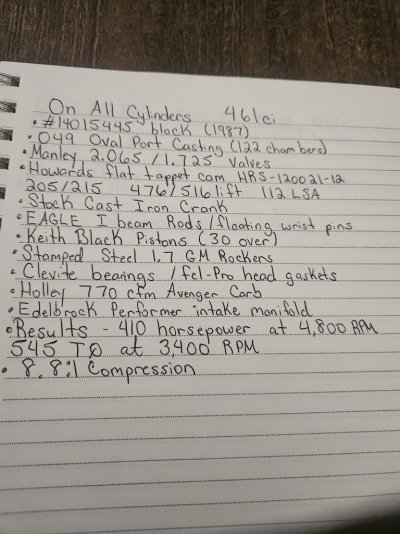 On All Cylinders 461ci
• #14015445 block (1987)
• 049 Oval Port Casting (122 chambers)
• Manley 2.065 / 1.725 Valves
• Howards flat tappet cam HRS-120021-12
205/215 476/516 lift 112 LSA
• Stock Cast Iron Crank
• EAGLE I beam Rods/floating wrist pins
• Keith Black Pistons (30 over)
• Stamped Steel 1.7 GM Rockers
• Clevite bearings / fel-Pro head gaskets
• Holley 770 cfm Avenger Carb
• Edelbrock Performer intake manifold
• Results - 410 horsepower at 4,800 RPM
545 TQ at 3,400 RPM
• 8.8:1 Compression